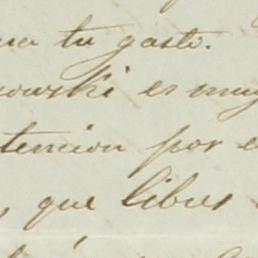 tu gasto.
owski es muy
tencion por e
, que libres